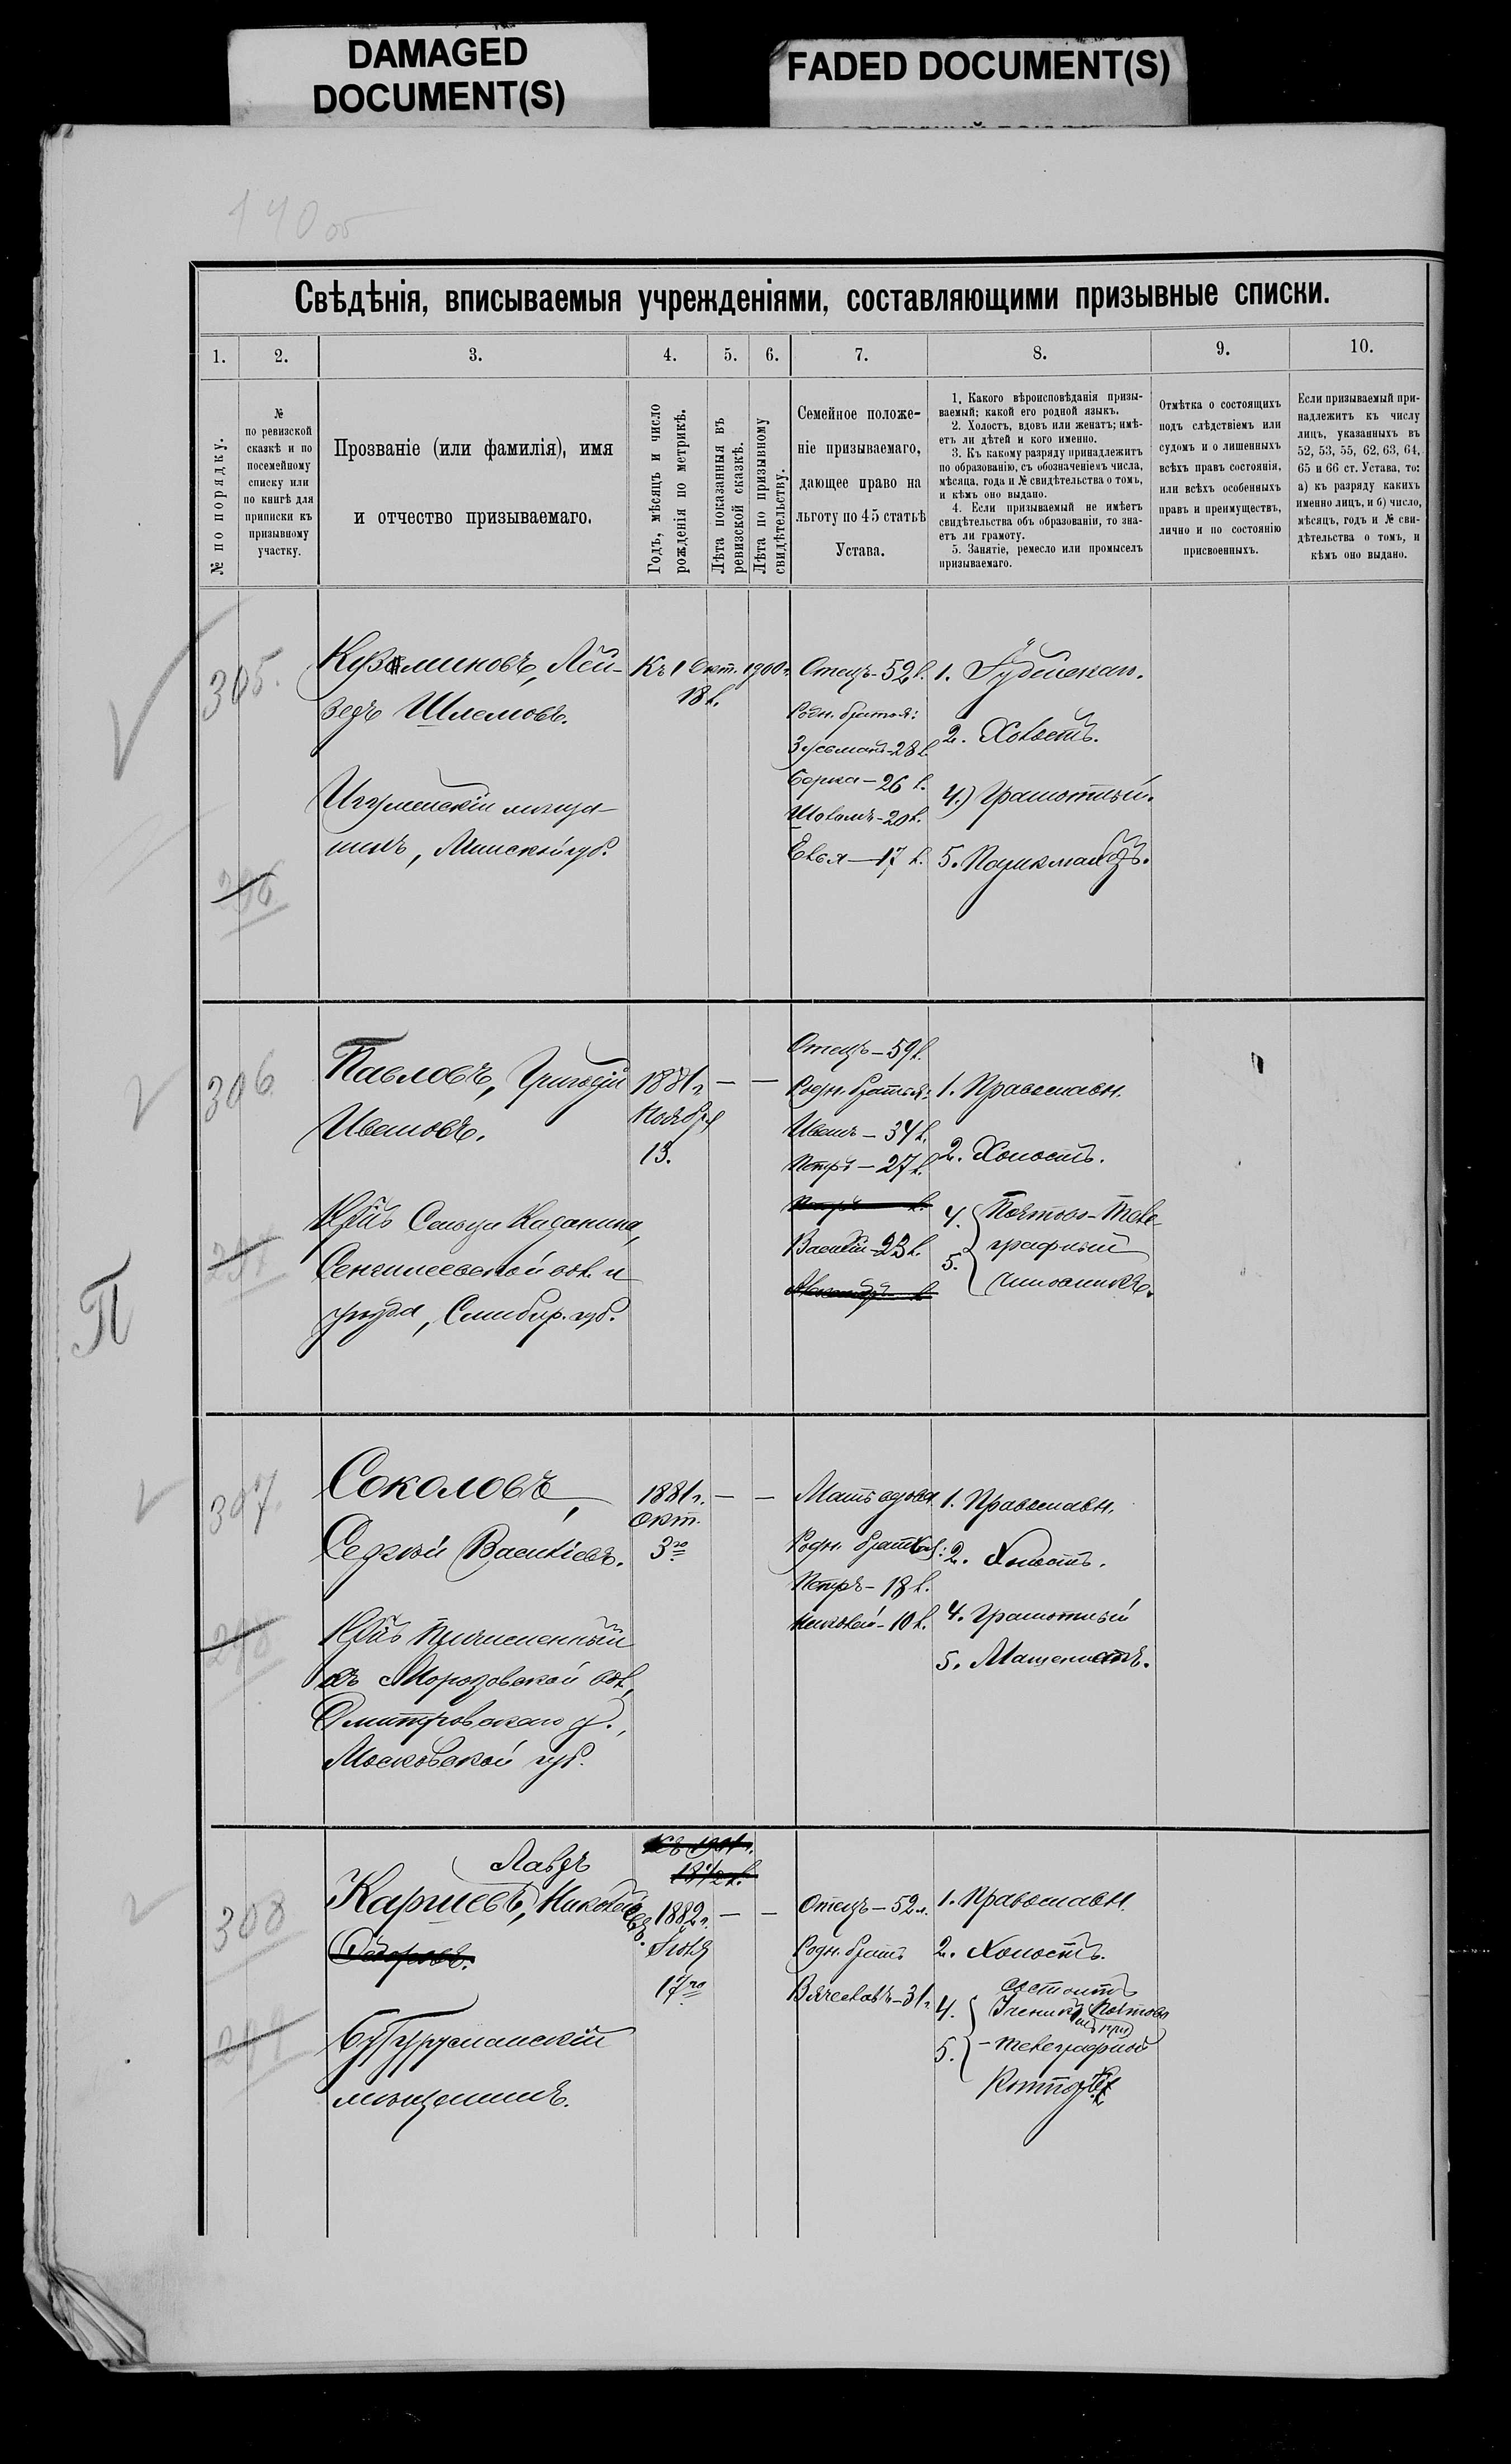 DAMAGED
DOCUMENT(S)
FADED DOCUMENT(S)
140 об
Свѣдѣнія, вписываемыя учрежденіями, составляющими призывные списки.
1.
2.
3.
4.
5.
6.
7.
8.
9.
10.
№ по порядку.
№
по ревизской
сказкѣ и по
посемейному
списку или
по книгѣ для
приписки къ
призывному
участку.
Прозваніе (или фамилія), имя
и отчество призываемаго.
Годъ, мѣсяцъ и число
рожденія по метрикѣ.
Лѣта показанныя въ
ревизской сказкѣ.
Лѣта по призывному
свидѣтельству.
Семейное положе-
ніе призываемаго,
дающее право на
льготу по 45 статьѣ
Устава.
1. Какого вѣроисповѣданія призы-
ваемый; какой его родной языкъ.
2. Холостъ, вдовъ или женатъ; имѣ-
етъ ли дѣтей и кого именно.
3. Къ какому разряду принадлежитъ
по образованію, съ обозначеніемъ числа,
мѣсяца, года и № свидѣтельства о томъ,
и кѣмъ оно выдано.
4. Если призываемый не имѣетъ
свидѣтельства объ образованіи, то зна-
етъ ли грамоту.
5. Занятіе, ремесло или промыселъ
призываемаго.
Отмѣтка о состоящихъ
подъ слѣдствіемъ или
судомъ и о лишенныхъ
всѣхъ правъ состоянія,
или всѣхъ особенныхъ
правъ и преимуществъ,
лично и по состоянію
присвоенныхъ.
Если призываемый при-
надлежитъ къ числу
лицъ, указанныхъ въ
52, 53, 55, 62, 63, 64,
65 и 66 ст. Устава, то:
а) къ разряду какихъ
именно лицъ, и б) число,
мѣсяцъ, годъ и № сви-
дѣтельства о томъ, и
кѣмъ оно выдано.
305.
Лей-
зеръ Шлемовъ.
Игуменскій мѣща-
нинъ, Минской губ.
296
Къ 1 Окт. 1900 г.
18 л.
Отецъ - 52 л.
Родн. братья:
Зусьманъ - 28 л.
Борка - 26 л.
- 20 л.
- 17 л.
1. Іудейскаго.
2. Холостъ.
4.) Грамотный.
5.
306
Павловъ, Григорій
Ивановъ.
Кр-нъ Сельца Кадыкина,
Сенгилеевской вол. и
уѣзда, Симбир. губ.
297
1881 г.
Ноября
13.
Отецъ - 59 л.
Родн. братья:
Иванъ - 34 л.
Петръ - 27 л.
Петръ л.
Василій - 23 л.
Александръ л
1. Православн.
2. Холостъ.
4. Почтово-Теле-
5. графный
чиновникъ.
П
307.
Соколовъ,
Сергѣй Василіевъ.
Кр-нъ Причисленный
къ Морозовской вол.,
Дмитровскаго у.,
Московской губ.
298
1881 г.
Окт.
3го
Мать вдова
Родн. братья:
Петръ - 18 л.
Николай - 10 л.
1. Православн.
2. Холостъ.
4. Грамотный
5. Машинистъ.
308
Лавръ
Каршевъ, Николаевъ.
Ѳедоровъ.
Бугурусланскій
мѣщанинъ.
299
Къ 1901 г.
18 1/2 л.
1882 г.
Іюля
17го
Отецъ - 52 л.
Родн. братъ
Вячеславъ - 31 г.
1. Православн.
2. Холостъ.
состоитъ
4. Ученикомъ при Почтово
5. -телеграфной
Конторѣ